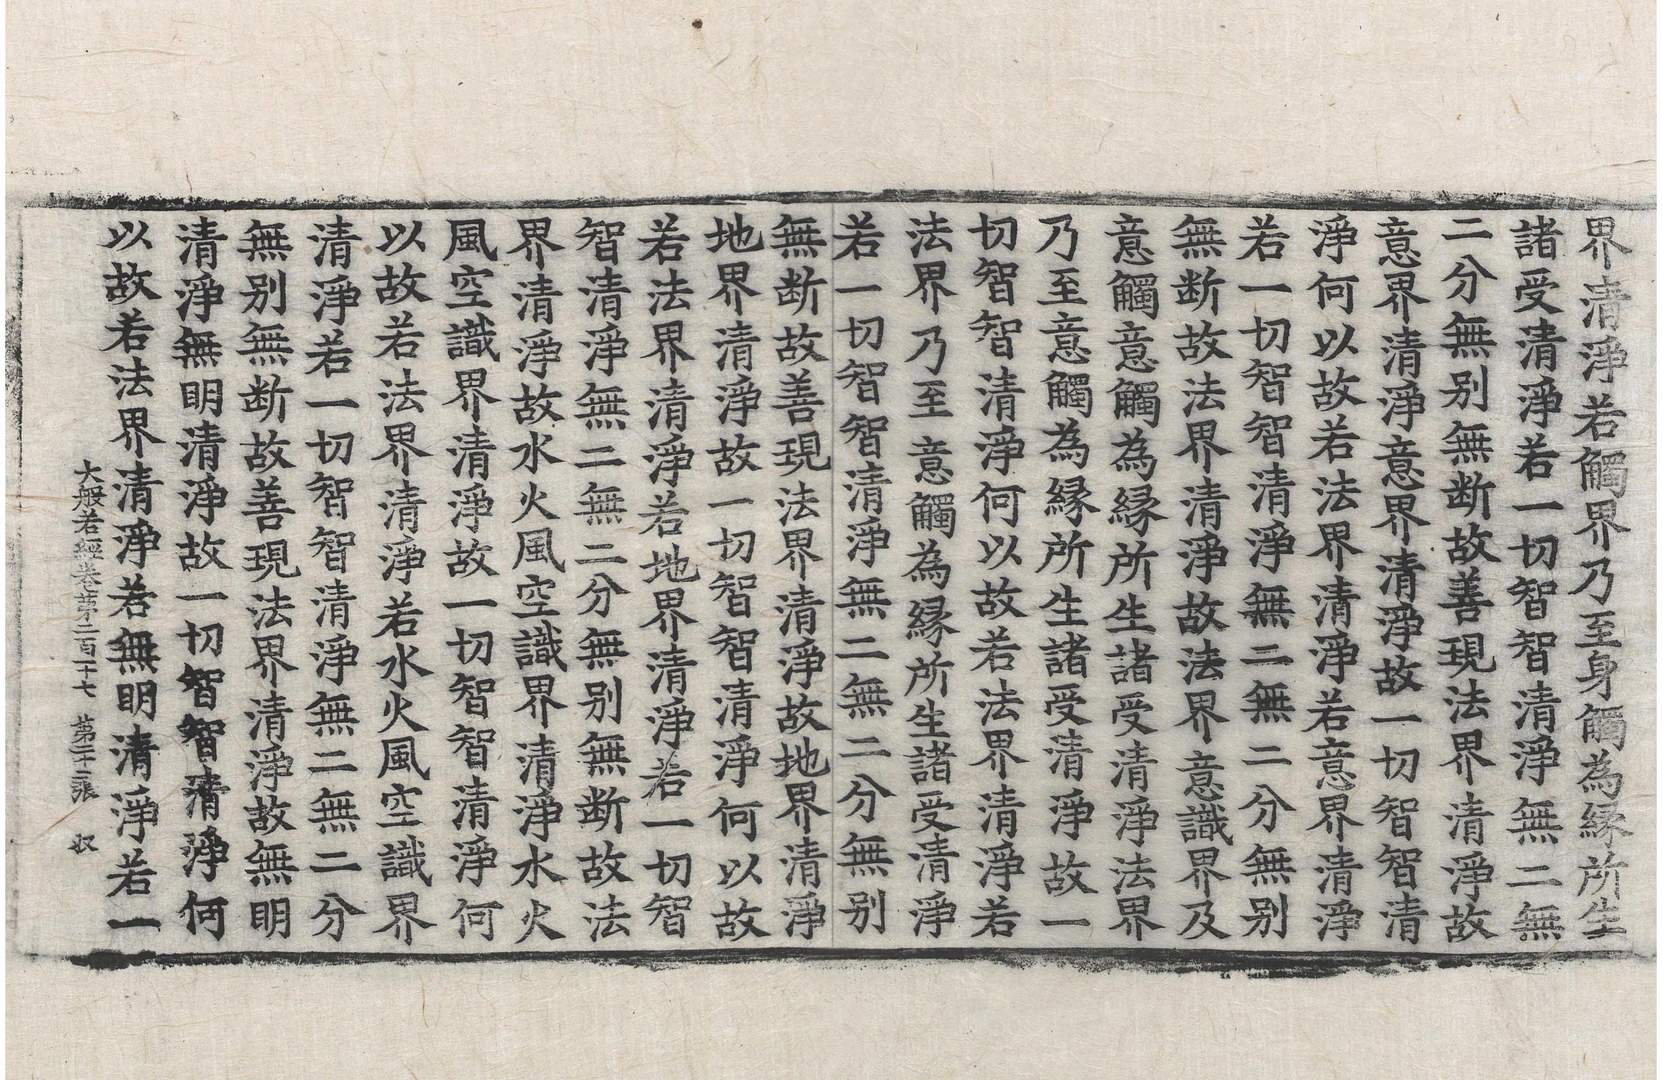 界清淨若觸界乃至身觸為縁所生
諸受清淨若一切智智清淨無二無
二分無别無断故善現法界清淨故
意界清淨意界清淨故一切智智清
淨何以故若法界清淨若意界清淨
若一切智智清淨無二無二分無别
無断故法界清淨故法界意識界及
意觸意觸為縁所生諸受清淨法界
乃至意觸為縁所生諸受清淨故一
切智智清淨何以故若法界清淨若
法界乃至意觸為縁所生諸受清淨
若一切智智清淨無二無二分無别
無断故善現法界清淨故地界清淨
地界清淨故一切智智清淨何以故
若法界清淨若地界清淨若一切智
智清淨無二無二分無别無断故法
界清淨故水火風空識界清淨水火
風空識界清淨故一切智智清淨何
以故若法界清淨若水火風空識界
清淨若一切智智清淨無二無二分
無别無断故善現法界清淨故無明
清淨無明清淨故一切智智清淨何
以故若法界清淨若無明清淨若一
大般若經卷苐二百一十七 苐二十二張 奴